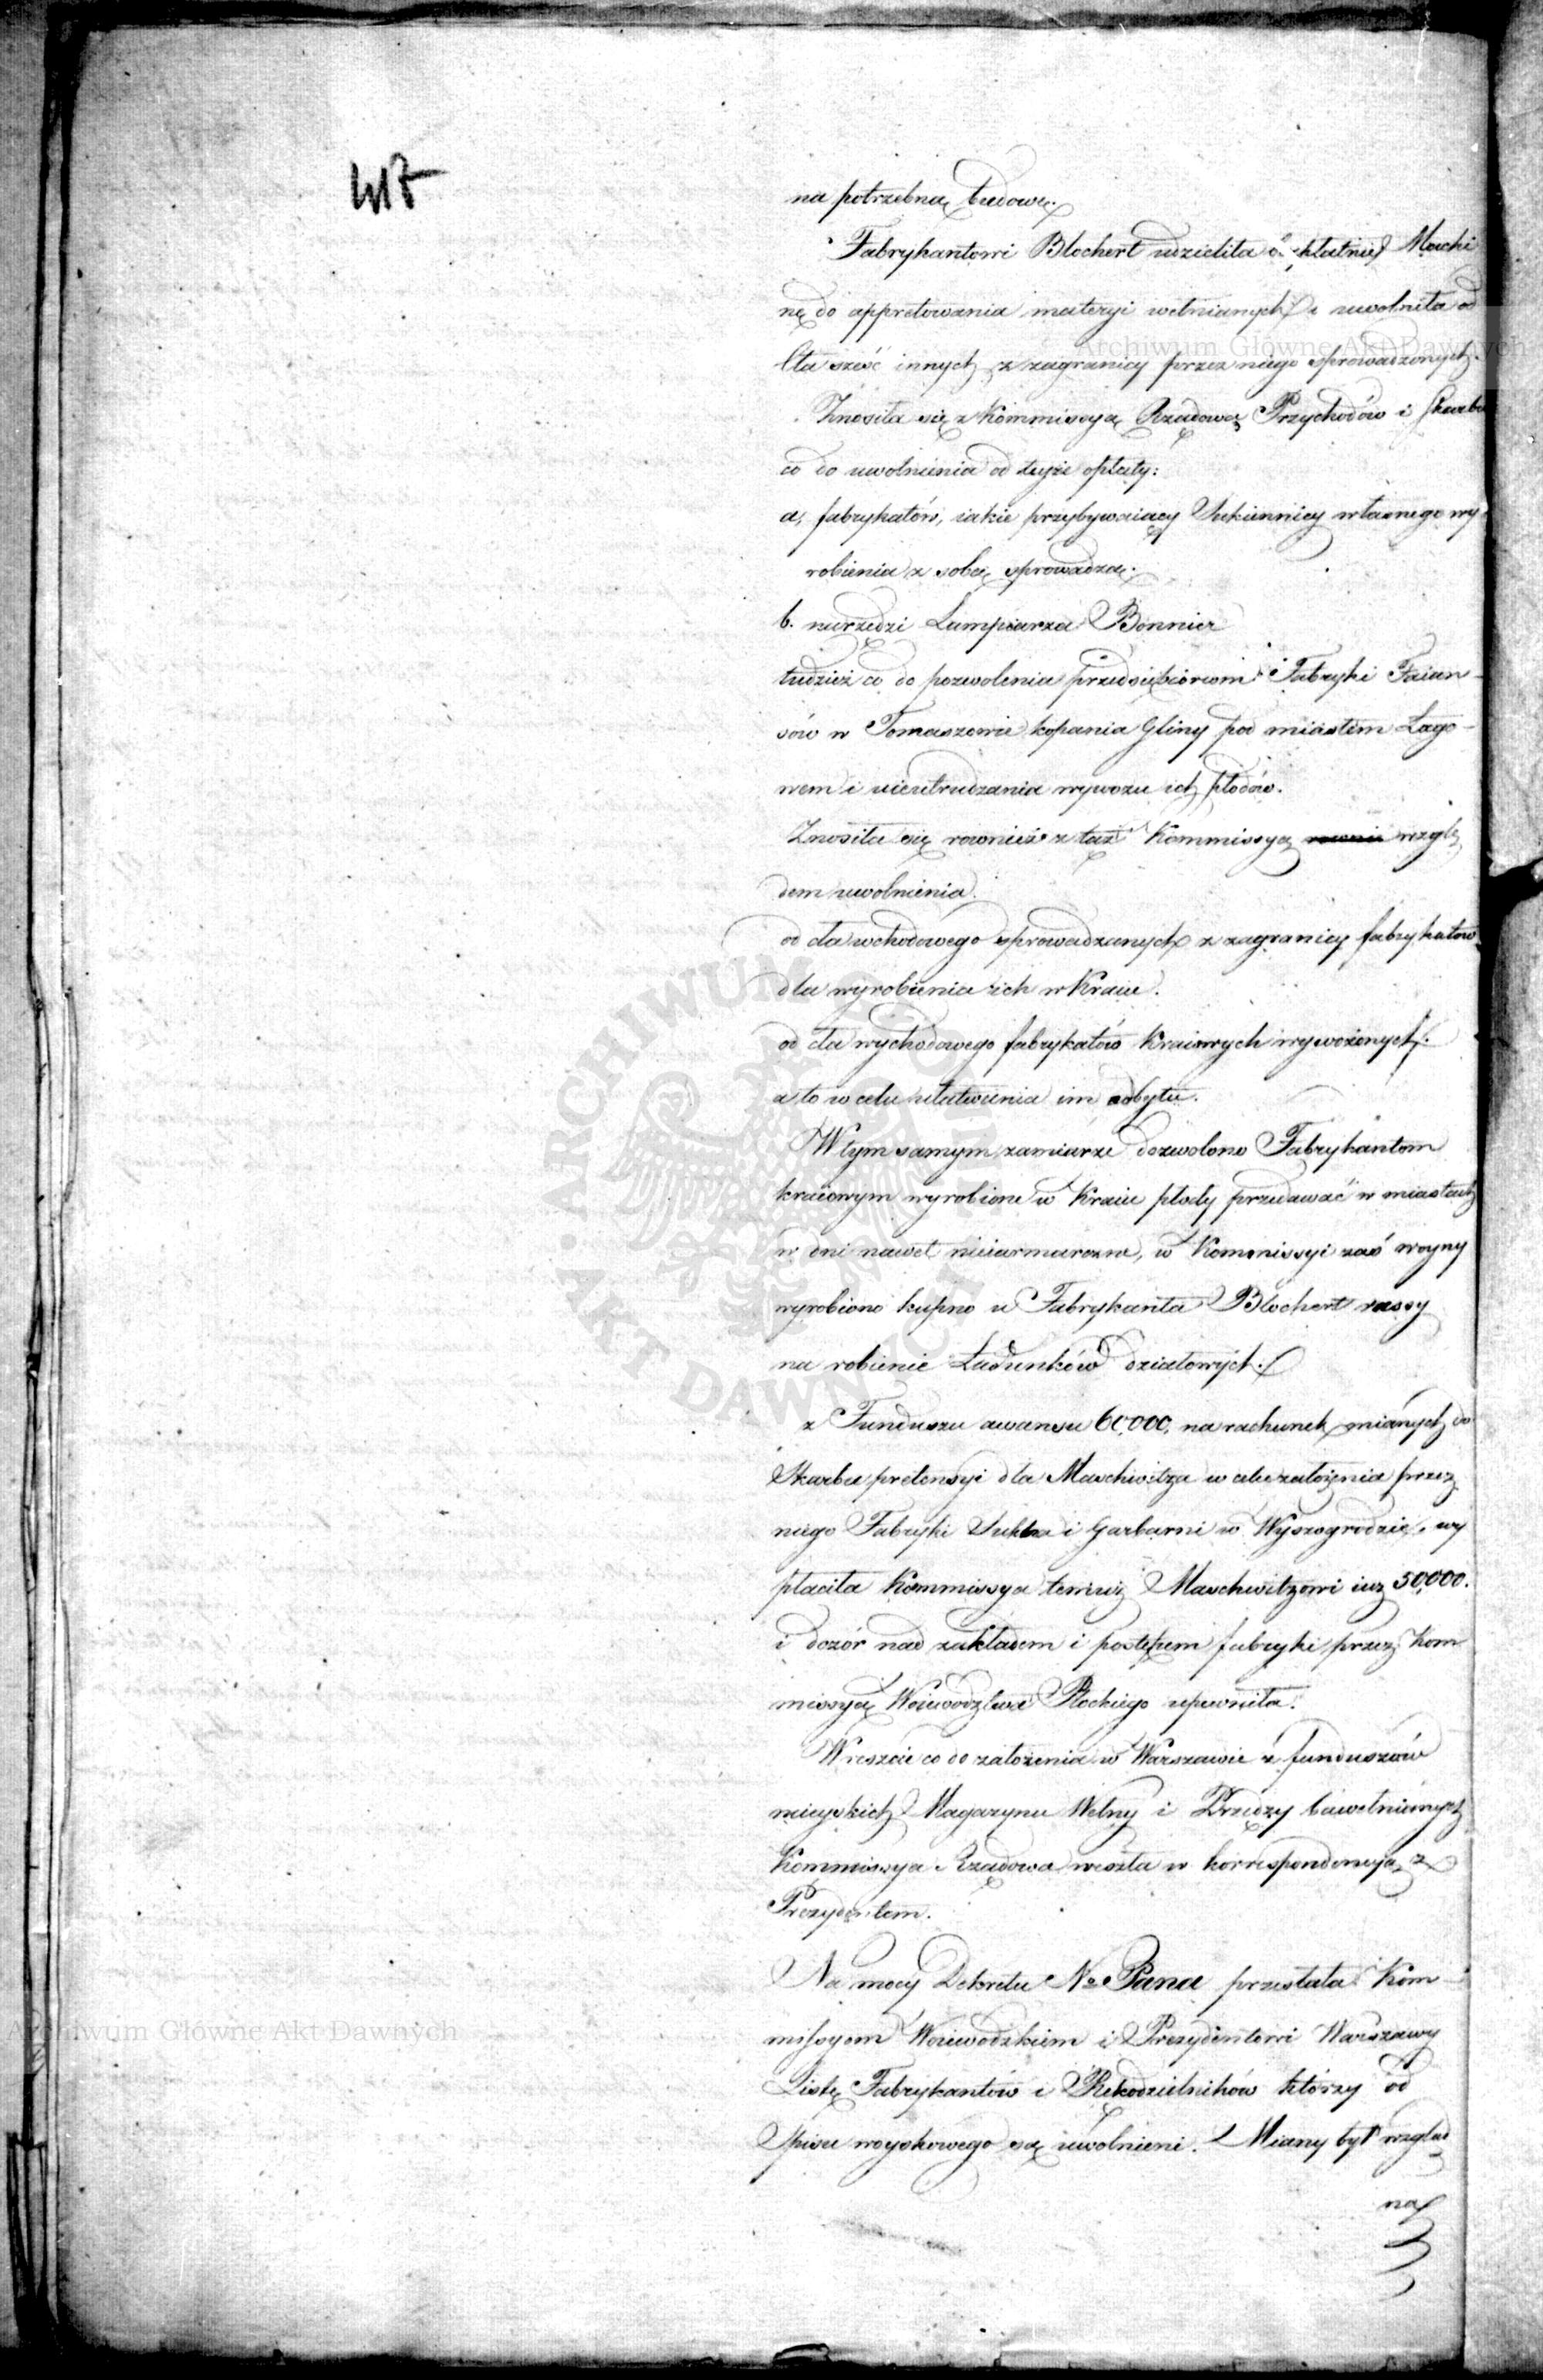 na potrzebną budowę.
Fabrykantowi Blochert udzieliła Machi
nę do appretowania materyi wełnianych i uwolniła od
Cła sześć innych z zagranicy przez niego sprowadzonych.
Znosiła się z Kommissyą Rządową Przychodów i Skarbu
co do uwolnienia od teyże opłaty:
a, fabrykatów, iakie przybywaiący Sukiennicy własnego wy
robienia z sobą sprowadzą.
b. narzędzi Lampiarza Bonnier
tudzież co do pozwolenia przedsiębiorcom Fabryki Faian-
sów w Tomaszowie kopania Gliny pod miastem Łago-
wem i nieutrudzania wywozu ich płodów.
Znosiła się rownież z taż Kommissyą wzglę
dem uwolnienia.
od cła wchodowego sprowadzanych z zagranicy fabrykatów
dla wyrobienia ich w Kraiu.
od cła wychodowego fabrykatów Kraiowych wywożonych.
a to w celu ułatwienia im odbytu.
W tym samym zamiarze dozwolono Fabrykantom
kraiowym wyrobione w Kraiu płody przedawać w miastach
w dni nawet nieiarmarczne, w Kommissyi zaś woyny
wyrobiono kupno u Fabrykanta Blochert rassy
na robienie Ładunków działowych.
z Funduszu awansu 60,000, na rachunek mianych do
Skarbu pretensyi dla Maschwitza w celu założenia przez
niego Fabryki Sukna i Garbarni w Wyszogrodzie, wy
płaciła Kommissya temuż Maschwitzowi iuż 50,000.
i dozór nad zakładem i postępem fabryki przez Kom
missyą Woiewodztwa Płockiego upewniła.
Wreszcie co do założenia w Warszawie z funduszów
mieyskich Magazynu Wełny i Przędzy bawełnianych
Kommissya Rządowa weszła w korrespondencyą z
Prezydentem.
Na mocy Dekretu No Pana przesłała Kom-
missyom Woiewodzkim i Prezydentowi Warszawy
Listę Fabrykantów i Rękodzielników którzy od
Spisu woyskowego są uwolnieni. Miany był wzgląd
na
Archiwum Główne Akt Dawnych
Archiwum Główne Akt Dawnych
ARCHIWUM GŁÓWNE AKT DAWNYCH